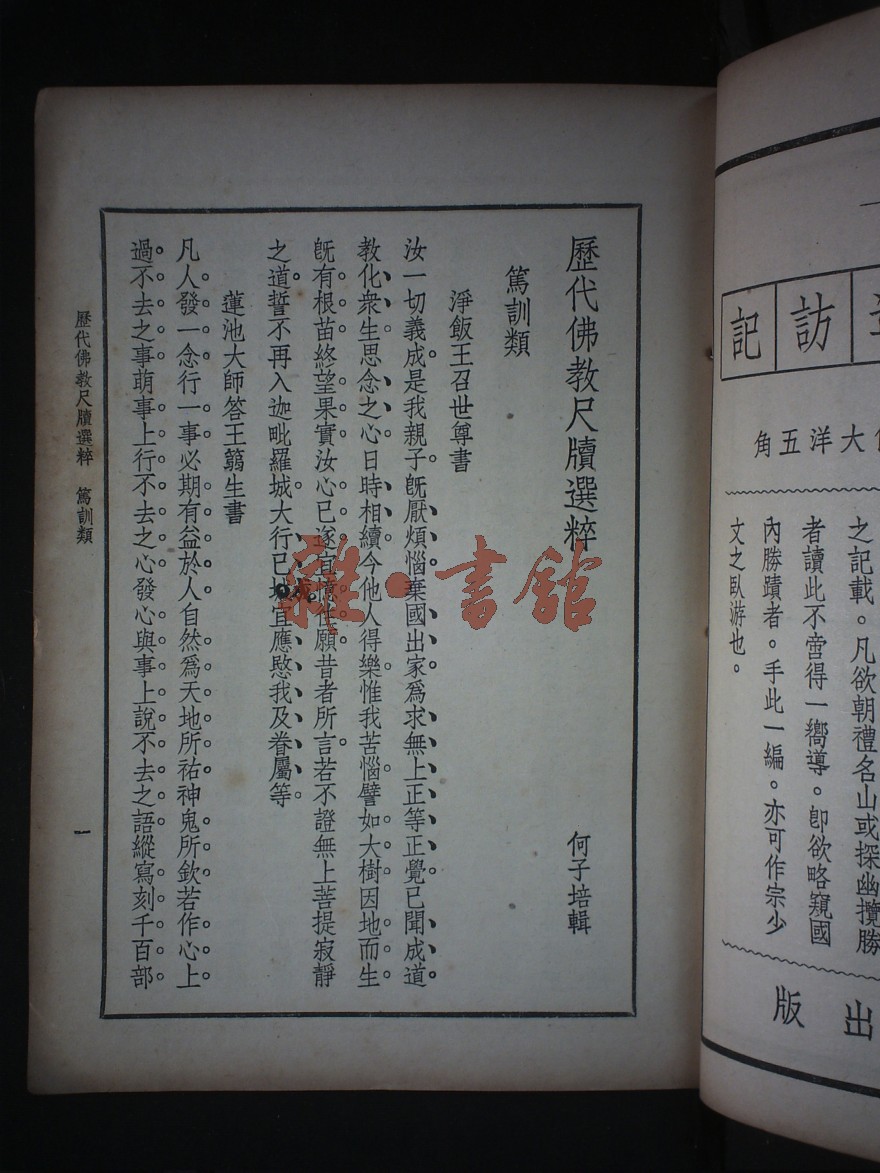 歷代佛教尺牘選粹　何子培輯
篤訓類
淨飯王召世尊書
汝一切義成是我親子。旣厭煩惱棄國出家爲求無上正等正覺已聞成道。
教化衆生思念之心日時相續今他人得樂惟我苦惱譬如大樹因地而生
旣有根苗終望果實汝心已遂宜憶
願昔者所言若不證無上菩提寂靜
之道。誓不再入迦毗羅城。大行已
宜應愍我及眷屬等。
蓮池大師答王蒻生書
凡人發一念行一事必期有益於人自然爲天地所祐神鬼所欽若作心上
過不去之事萌事上行不去之心發心與事上說不去之語縱寫刻千百部
歷代佛教尺牘選粹　篤訓類
一
雜·書館
訪
記
大洋五角
之記載。凡欲朝禮名山或探幽攬勝
者讀此不啻得一嚮導。卽欲略窺國
內勝蹟者。手此一編。亦可作宗少
文之臥游也。
出版